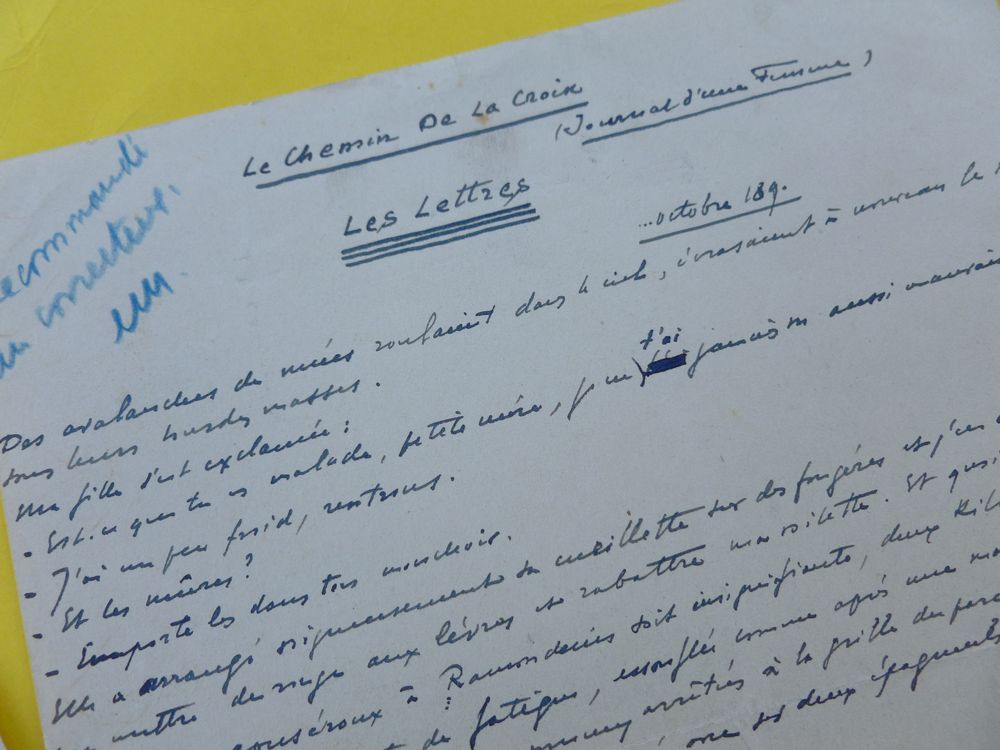 Le Chemin De La Croix
(Journal d'une Femme)
Les Lettres
...octobre 189.
correcteur.
Des avalanches de nuées roulaient dans le ciel, écrasaient à nouveau le
sous leurs lourdes masses.
Ma fille s'est exclamée :
- Est-ce que tu es malade, petite mère, je ne t'ai jamais vu aussi mauvais
- J'ai un peu froid, rentrons.
- Et les mûres ?
- Emporte les dans ton mouchoir.
Elle a arrangé soigneusement sa cueillette sur des fougères et j'en ai
mettre du rouge aux lèvres et rabattre ma voilette. Et quoi
à soit insignifiante, deux kilo
de fatigue, essoufflée comme après une
arrêtées à la grille du parc
deux épagneuls